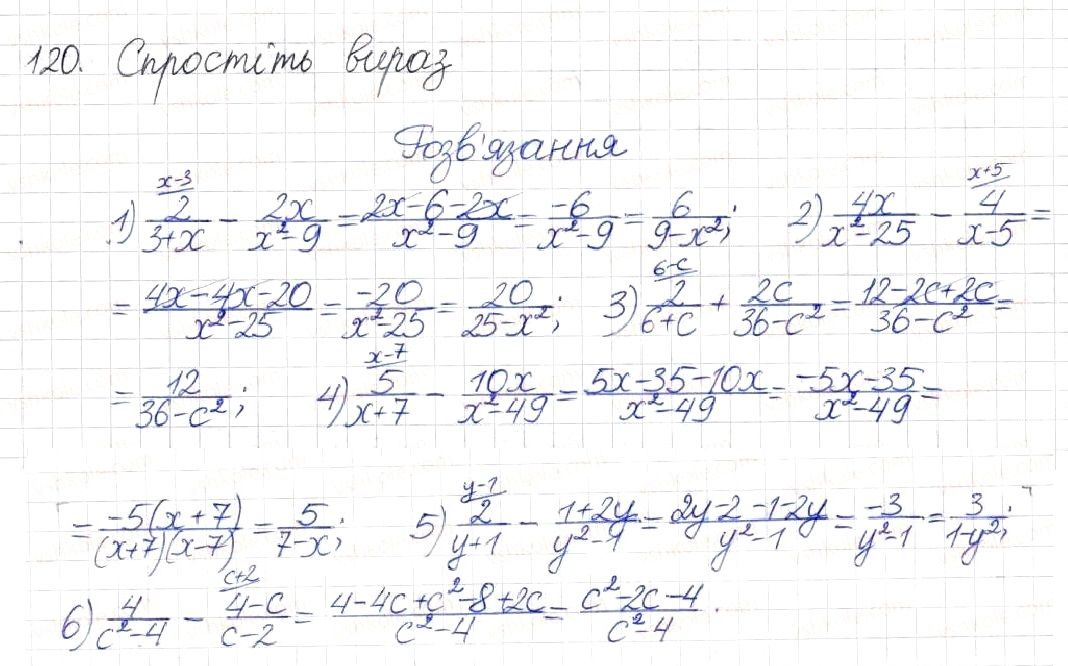 120. Спростіть вираз
Розв'язання
1) \frac{2}{3+x}^{x-3} - \frac{2x}{x²-9} = \frac{2x-6-2x}{x²-9} = \frac{-6}{x²-9} = \frac{6}{9-x²}; 2) \frac{4x}{x²-25} - \frac{4}{x-5}^{x+5} =
= \frac{4x-4x-20}{x²-25} = \frac{-20}{x²-25} = \frac{20}{25-x²}; 3) \frac{2}{6+c}^{6-c} + \frac{2c}{36-c²} = \frac{12-2c+2c}{36-c²} =
= \frac{12}{36-c²}; 4) \frac{5}{x+7}^{x-7} - \frac{10x}{x²-49} = \frac{5x-35-10x}{x²-49} = \frac{-5x-35}{x²-49} =
= \frac{-5(x+7)}{(x+7)(x-7)} = \frac{5}{7-x}; 5) \frac{2}{y+1}^{y-1} - \frac{1+2y}{y²-1} = \frac{2y-2-1-2y}{y²-1} = \frac{-3}{y²-1} = \frac{3}{1-y²};
6) \frac{4}{c²-4} - \frac{4-c}{c-2}^{c+2} = \frac{4-4c+c²-8+2c}{c²-4} = \frac{c²-2c-4}{c²-4}.